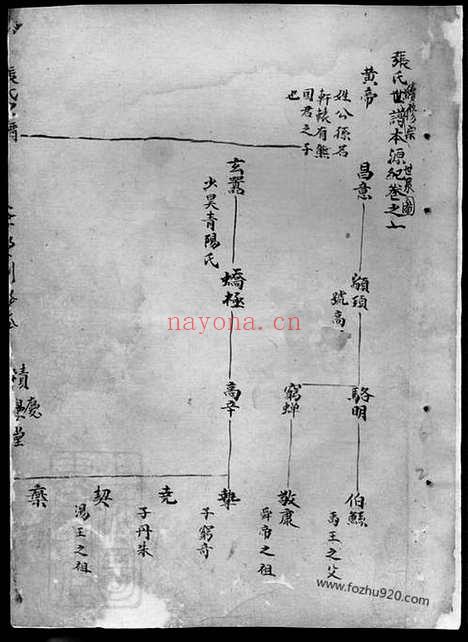 張氏世譜本源紀卷之一
續修宗
世系圖
黄帝
姓公孫名
軒轅有熊
國君之子
也
昌意
顓頊
號高
駱明
伯鯀
禹王之父
窮蟬
敬康
舜帝之祖
玄囂
少昊青陽氏
蟜極
高辛
摯
子窮奇
堯
子丹朱
契
湯王之祖
棄
慶
堂
nayona.cn
www.fozhu920.com